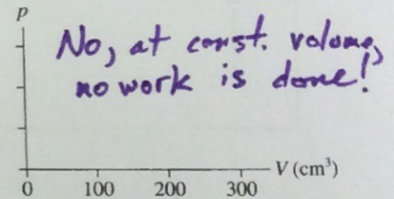 p
No, at const. volume,
no work is done!
V (cm³)
0 100 200 300